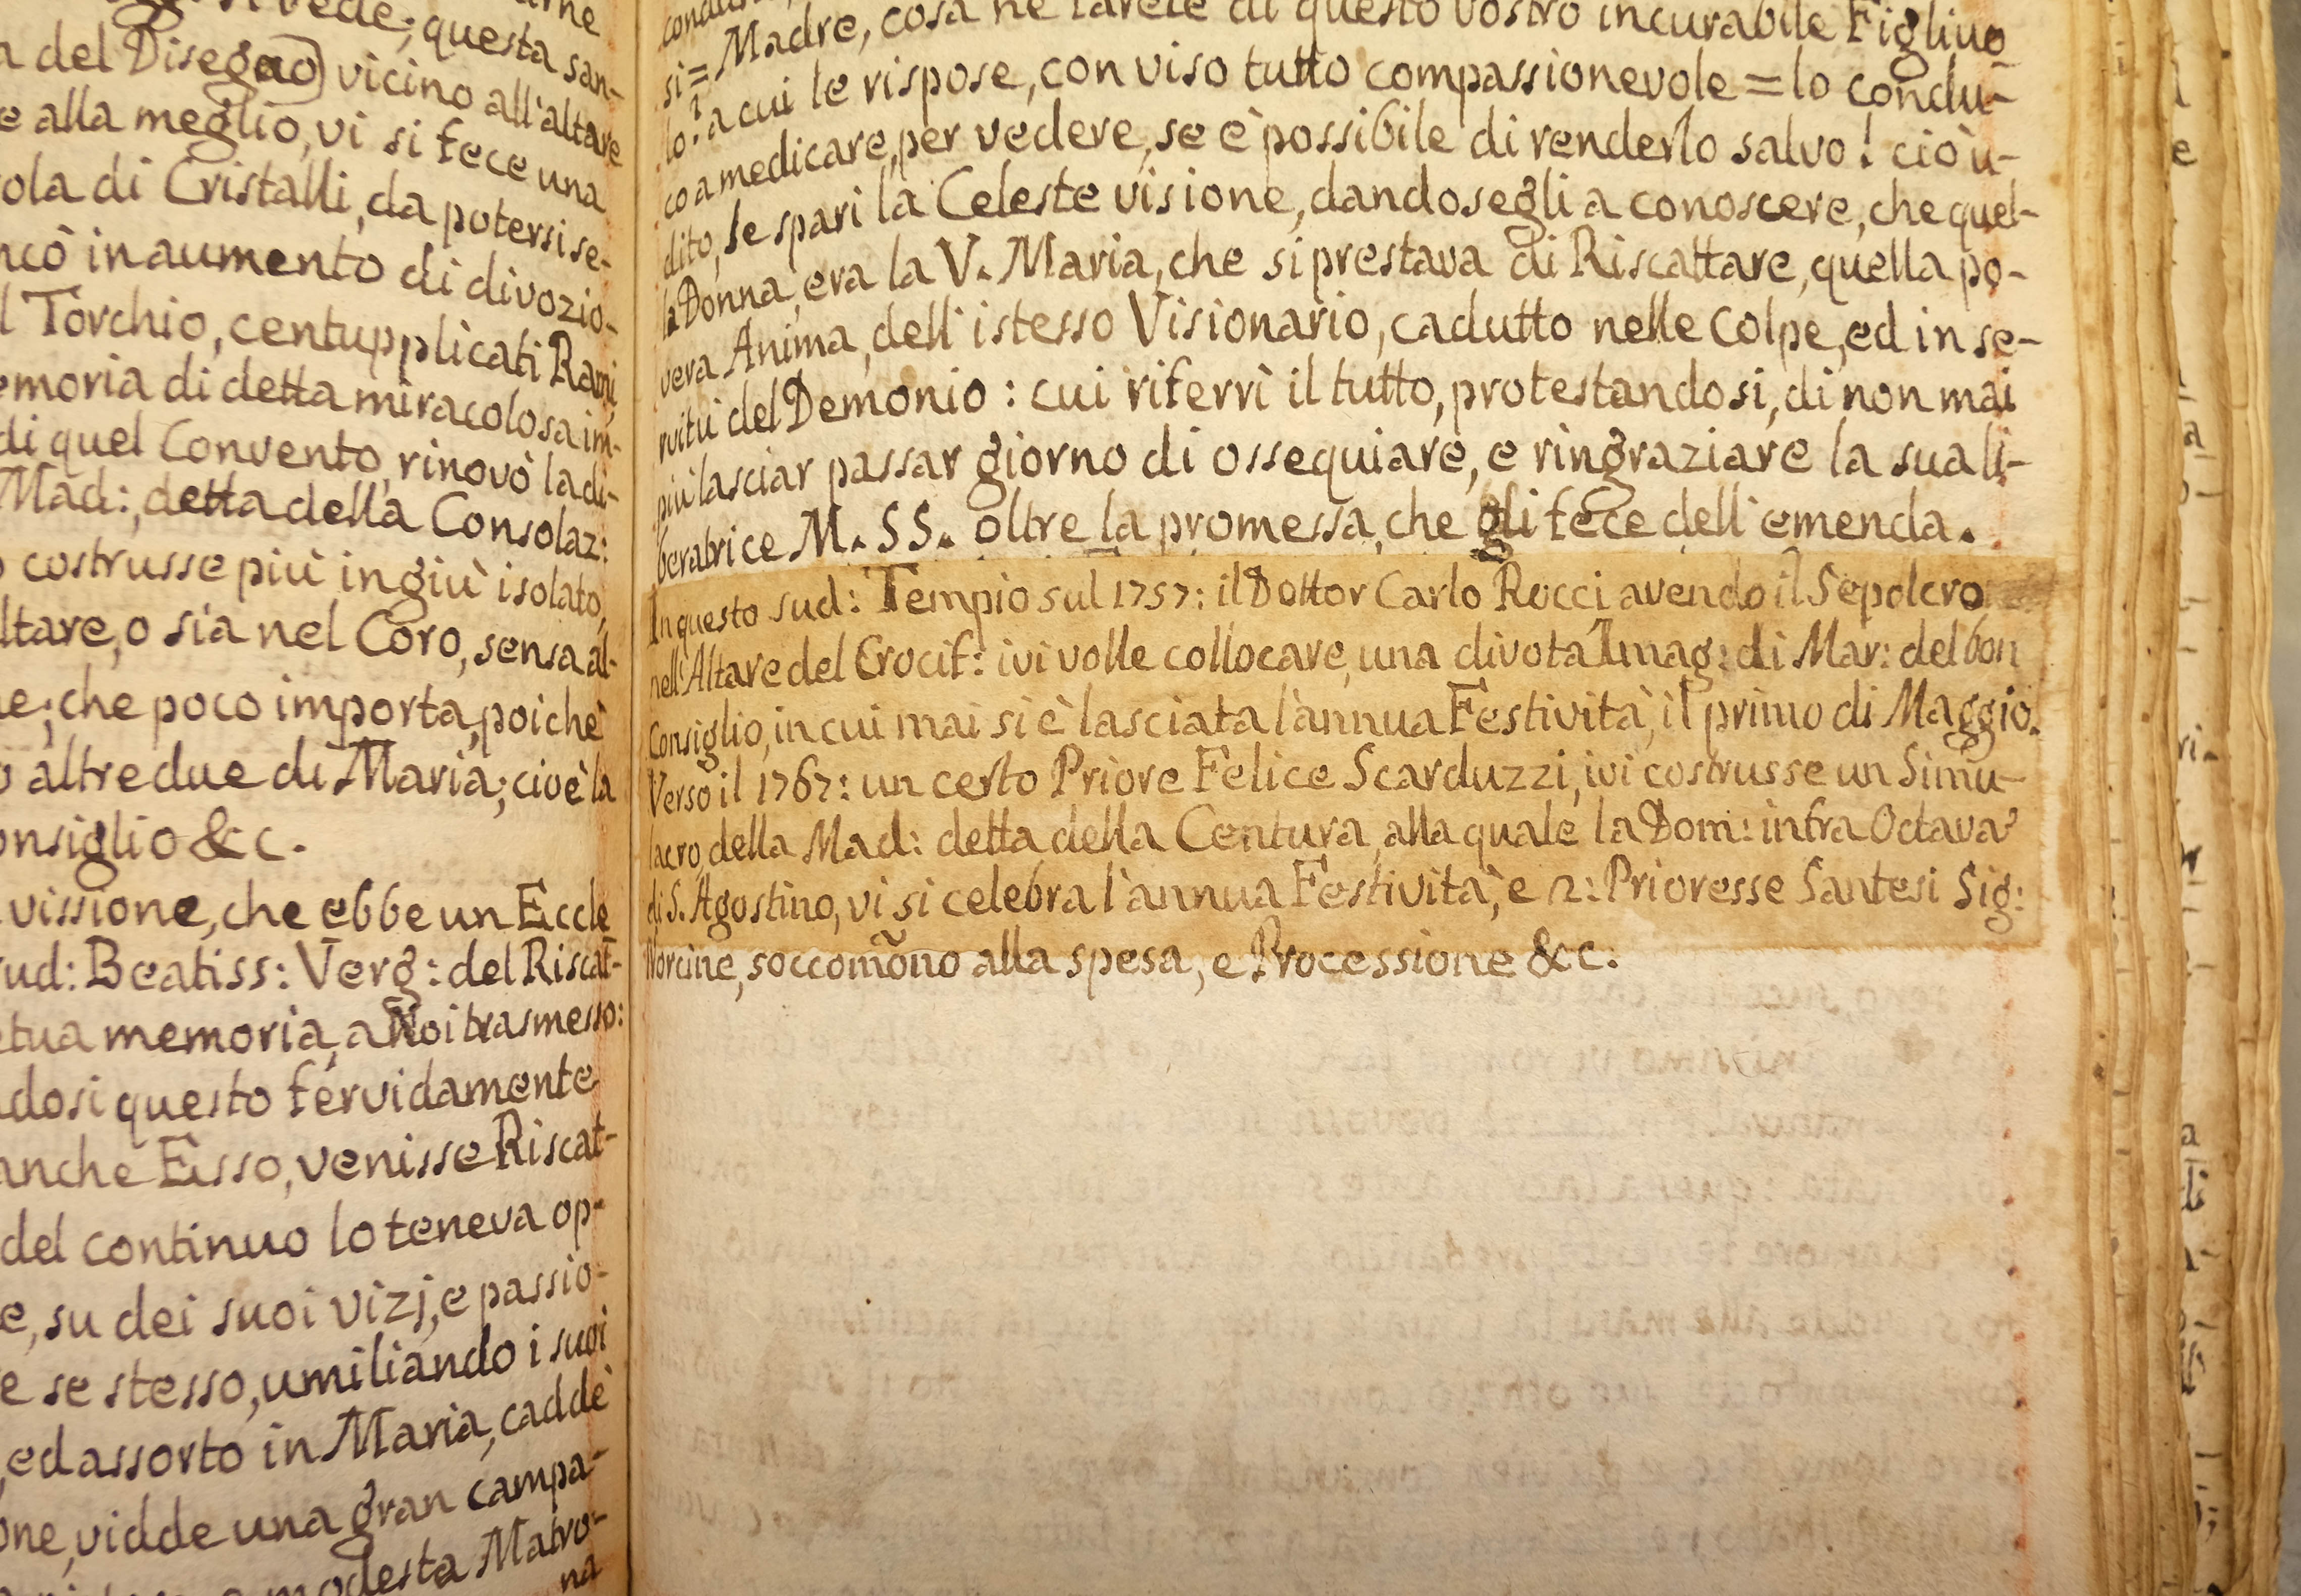 si vede; questa san-
del Disegno) vicino all'altare
e alla meglio, vi si fece una
ola di Cristalli, da potersi se-
ncò in aumento di divozio-
l Torchio, centupplicati Rami,
emoria di detta miracolosa im-
di quel Convento, rinovò la di-
Mad:, detta della Consolaz:
costrusse più in giù isolato,
ltare, o sia nel Coro, sensa al-
ne; che poco importa, poichè
altre due di Maria; cioè la
onsiglio &c.
vissione, che ebbe un Eccle
ud: Beatiss: Verg: del Riscat-
etua memoria, a Noi trasmesso:
dosi questo fervidamente
anche Esso, venisse Riscat-
del continuo lo teneva op-
e, su dei suoi vizj, e passio-
e se stesso, umiliando i suoi
, ed assorto in Maria, caddè
one, vidde una gran campa-
modesta Matro-
na
si = Madre, cosa ne farete di questo vostro incurabile Figliuo
lo? a cui le rispose, con viso tutto compassionevole = lo condu-
co a medicare, per vedere, se è possibile di renderlo salvo! ciò u-
dito, le spari la Celeste visione, dandosegli a conoscere, che quel-
la Donna, era la V. Maria, che si prestava di Riscattare, quella po-
vera Anima, dell'istesso Visionario, cadutto nelle Colpe, ed in se-
rvitù del Demonio: cui riferrì il tutto, protestandosi, di non mai
più lasciar passar giorno di ossequiare, e ringraziare la sua li-
beratrice M. SS. oltre la promessa, che gli fece dell'emenda.
In questo sud: Tempio sul 1757: il Dottor Carlo Rocci avendo il Sepolcro
nell'Altare del Crocif: ivi volle collocare, una divota Imag: di Mar: del bon
Consiglio, in cui mai si è lasciata l'annua Festività, il primo di Maggio.
Verso il 1767: un certo Priore Felice Scarduzzi, ivi costrusse un Simu-
lacro, della Mad: detta della Centura, alla quale la Dom: infra Octava
di S. Agostino, vi si celebra l'annua Festività, e 2: Prioresse Santesi Sig:
Norcine, soccomõno alla spesa, e Processione &c.